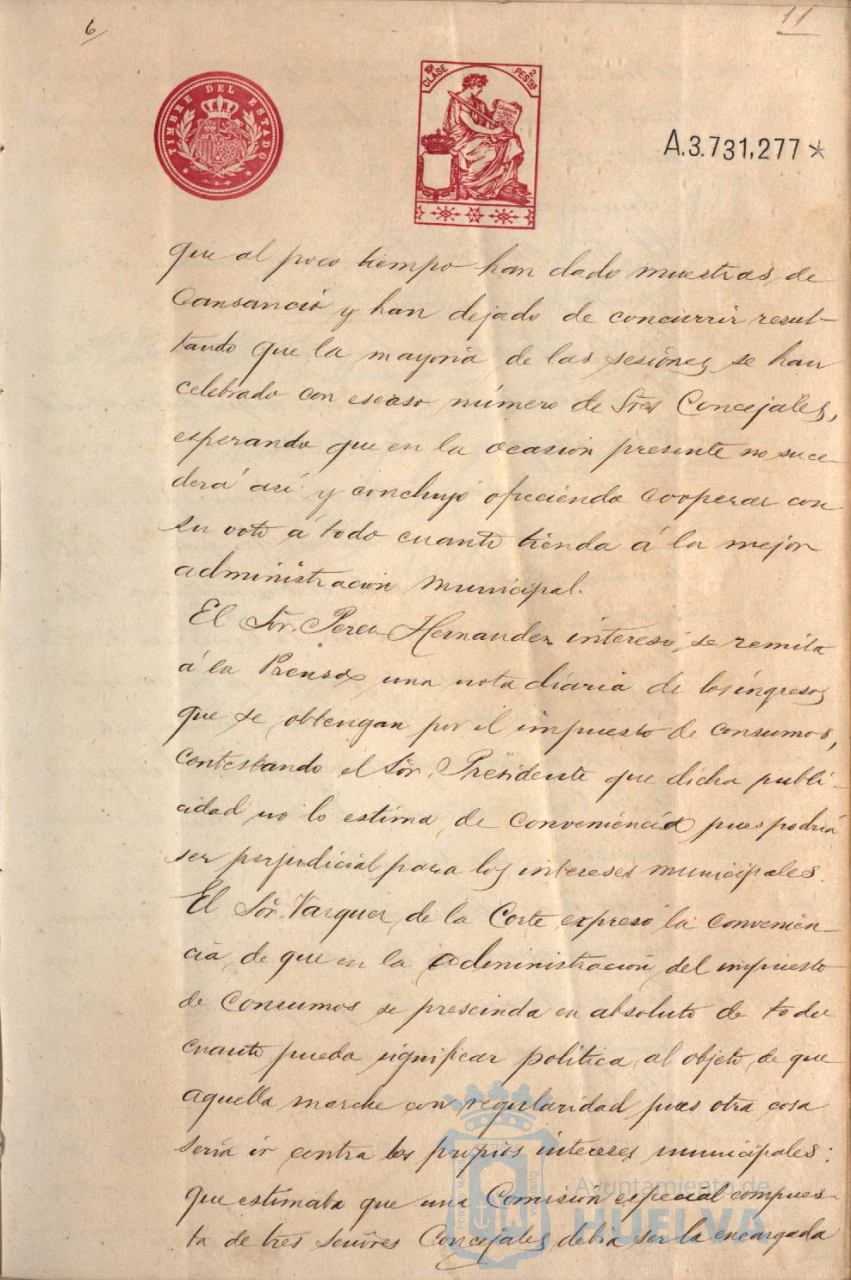 6
11
TIMBRE DEL ESTADO
10ª CLASE 2 PESTAS
A.3.731,277*
que al poco tiempo han dado muestras de
Cansancio y han dejado de concurrir resul-
tando que la mayoria de las sesiones se han
celebrado con escaso número de Sres Concejales,
esperando que en la ocasión presente no suce-
derá así y concluyó ofreciendo cooperar con
su voto á todo cuanto tienda á la mejor
administracion municipal.
El Sór. Perez Hernandez interesó se remita
á la Prensa una nota diaria de los ingresos
que se obtengan por el impuesto de consumos,
contestando el Sór. Presidente que dicha publi-
cidad no lo estima de conveniencia pues podria
ser perjudicial para los intereses municipales.
El Sór. Vazquez de la Corte expresó la convenien-
cia de que en la administración del impuesto
de Consumos se prescinda en absoluto de todo
cuanto pueda significar politica al objeto de que
aquella marche con regularidad pues otra cosa
seria ir contra los propios intereses municipales:
que estimaba que una Comisión especial compues-
ta de tres señores Concejales debia ser la encargada
Ayuntamiento de
HUELVA